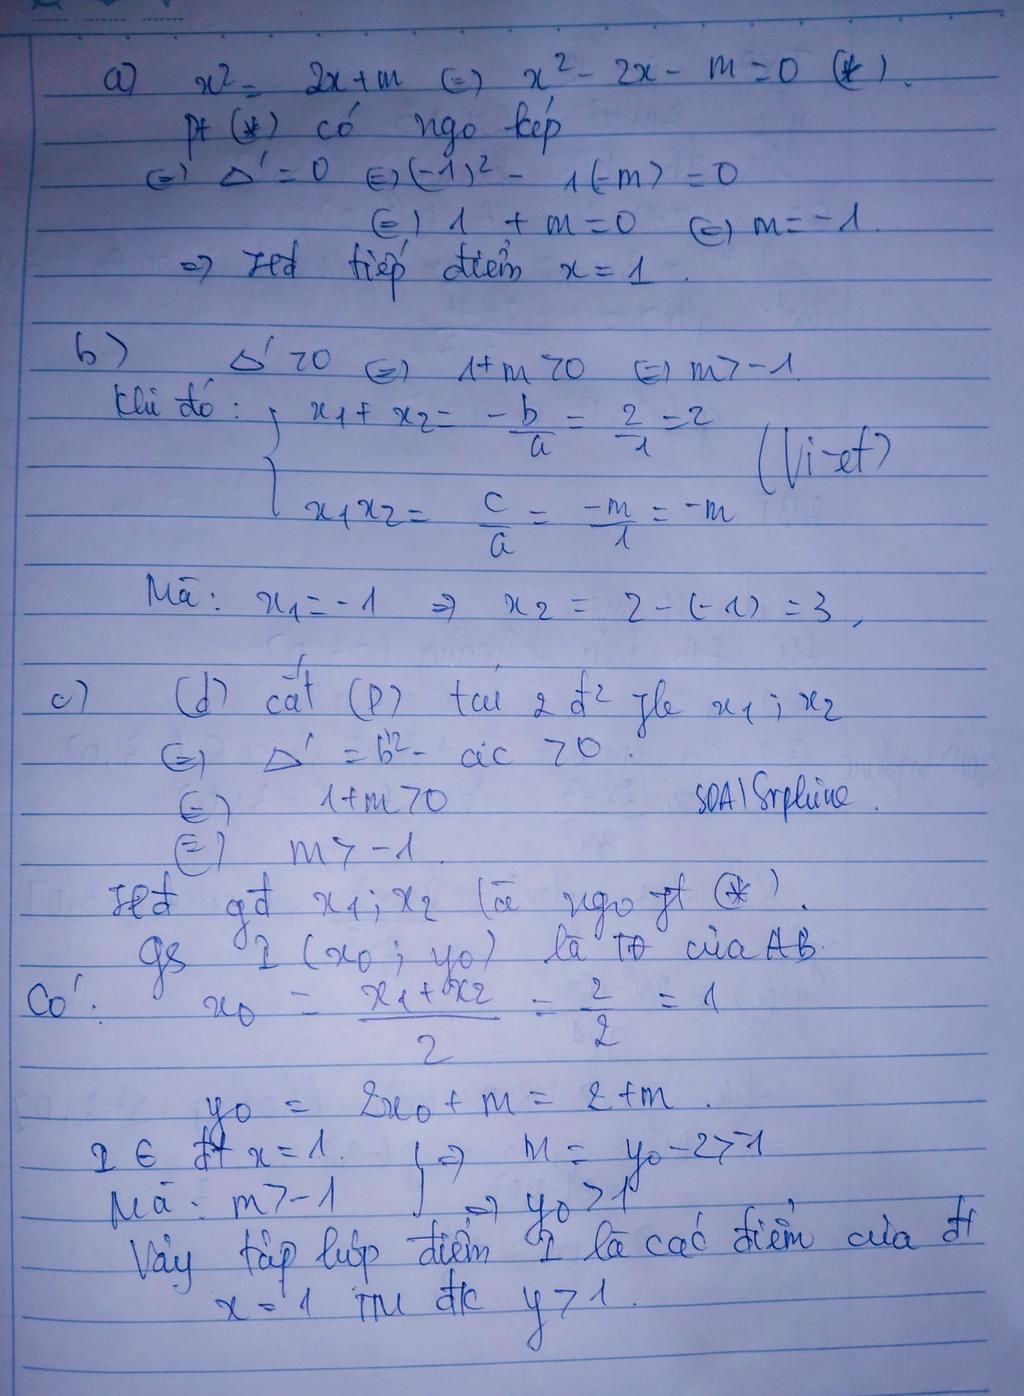 a) x² = 2x+m (=) x² - 2x - m = 0 (*).
pt (*) có ngo kép
(=) Δ' = 0 (=) (-1)² - 1(-m) = 0
(=) 1 + m = 0 (=) m = -1.
=> Hđ tiếp điểm x = 1.
b) Δ' > 0 (=) 1+m > 0 (=) m > -1.
Khi đó: { x₁ + x₂ = -b/a = 2/1 = 2
(Vi-et)
x₁x₂ = c/a = -m/1 = -m
Mà: x₁ = -1 => x₂ = 2 - (-1) = 3,
c) (d) cắt (P) tại 2 đ² x₁; x₂
(=) Δ' = b'² - ac > 0.
(=) 1+m > 0
(=) m > -1.
Hđ gđ x₁; x₂ là ngo pt (*).
gs I (x₀; y₀) là TĐ của AB.
Có: x₀ = (x₁+x₂)/2 = 2/2 = 1
y₀ = 2x₀ + m = 2+m.
I ∈ đt x = 1. } => m = y₀ - 2 > -1
Mà: m > -1 => y₀ > 1
Vậy tập hợp điểm I là các điểm của đt
x = 1 TM đk y > 1.